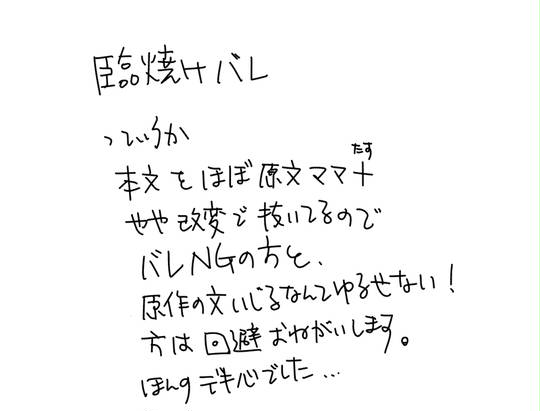 臨焼けバレ
っていうか
本文をほぼ原文ママ+
たす
やや改変で抜いてるので
バレNGの方と、
原作の文いじるなんてゆるせない!
方は回避おねがいします。
ほんの デキ心でした…